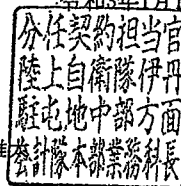 令和3年1月1
分任契約担当官
陸上自衛隊伊丹
駐屯地中部方面
会計隊本部業務科長